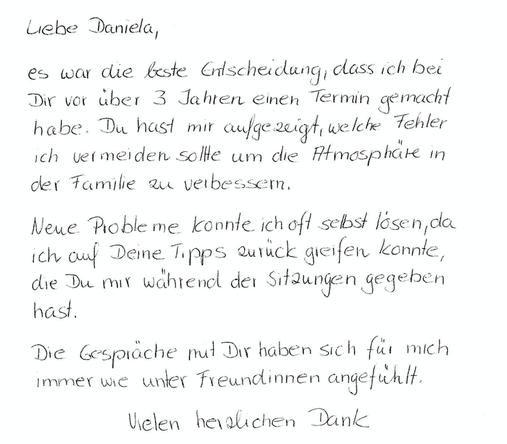 Liebe Daniela,
es war die beste Entscheidung, dass ich bei
Dir vor über 3 Jahren einen Termin gemacht
habe. Du hast mir aufgezeigt, welche Fehler
ich vermeiden sollte um die Atmosphäre in
der Familie zu verbessern.
Neue Probleme konnte ich oft selbst lösen, da
ich auf Deine Tipps zurück greifen konnte,
die Du mir während der Sitzungen gegeben
hast.
Die Gespräche mit Dir haben sich für mich
immer wie unter Freundinnen angefühlt.
Vielen herzlichen Dank